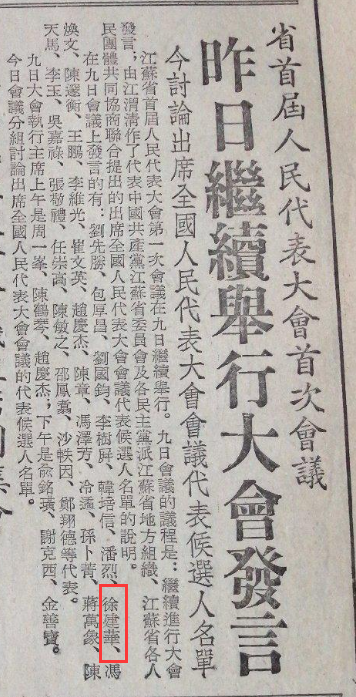 省首屆人民代表大會首次會議
昨日繼續舉行大會發言
今討論出席全國人民代表大會會議代表候選人名單
江蘇省首屆人民代表大會第一次會議在九日繼續舉行。九日會議的議程是：繼續進行大會
發言；由江渭清作了代表中國共產黨江蘇省委員會及各民主黨派江蘇省地方組織、江蘇省各人
民團體共同協商聯合提出的出席全國人民代表大會會議代表候選人名單的說明。
在九日會議上發言的有：劉先勝、包厚昌、劉國鈞、李樹屏、韓培信、潘烈、徐建華、馮
煥文、陳邃衡、王鵬、李維光、崔文英、趙慶杰、陳章、馮澤芳、冷遹、孫卜菁、蔣萬象、陳
天馬、李玉、吳嘉祿、張敬禮、任崇高、陳敏之、邵鳳翥、沙軼因、鄭翔德等代表。
九日大會執行主席上午是周一峯、陳鶴琴、趙慶杰；下午是俞銘璜、謝克西、金善寶。
今日會議分組討論出席全國人民代表大會會議的代表候選人名單。